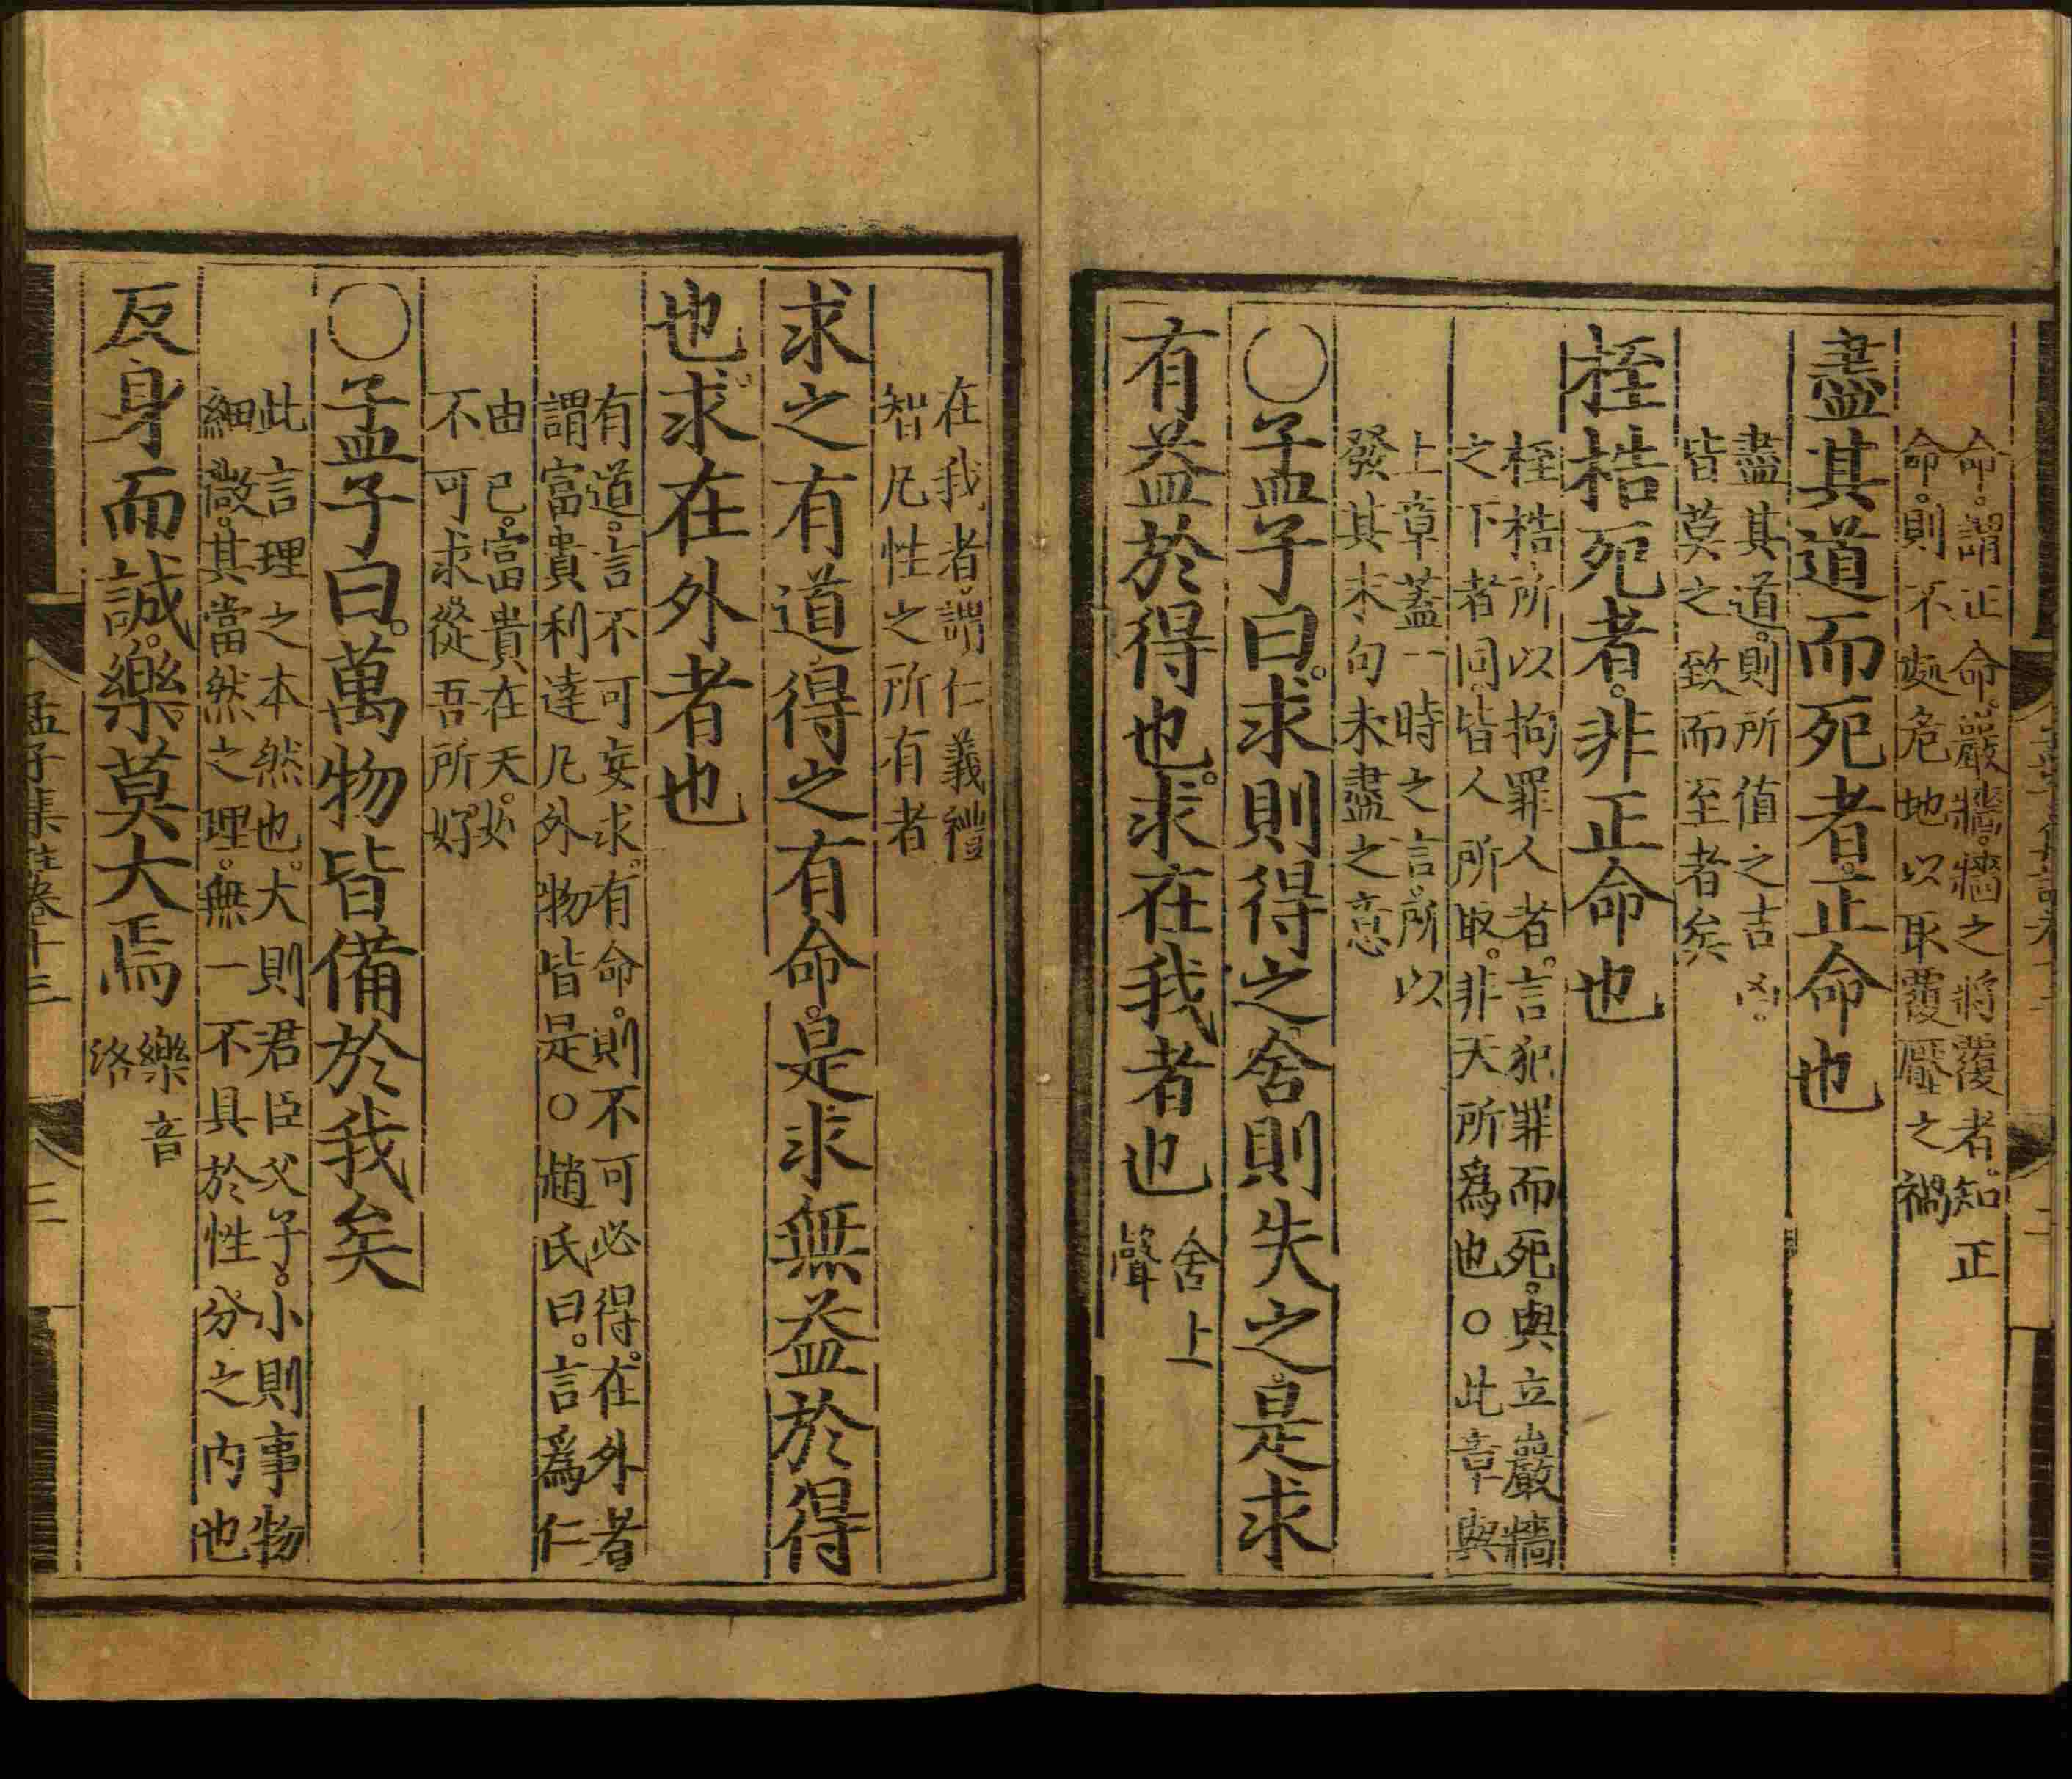 命。謂正命。巖牆。牆之將覆者。知正
命。則不處危地以取覆壓之禍
盡其道而死者。正命也
盡其道。則所值之吉凶。
皆莫之致而至者矣
桎梏死者。非正命也
桎梏。所以拘罪人者。言犯罪而死。與立巖牆
之下者同。皆人所取。非天所爲也○此章與
上章蓋一時之言。所以
發其末句未盡之意
○孟子曰。求則得之。舍則失之。是求
有益於得也。求在我者也
舍上
聲
在我者。謂仁義禮
智凡性之所有者
求之有道。得之有命。是求無益於得
也。求在外者也
有道。言不可妄求。有命。則不可必得。在外者
謂富貴利達。凡外物皆是○趙氏曰。言爲仁
由己。富貴在天。如
不可求。從吾所好
○孟子曰。萬物皆備於我矣
此言理之本然也。大則君臣父子。小則事物
細微。其當然之理。無一不具於性分之內也
反身而誠。樂莫大焉
樂音
洛
孟子集註卷十三